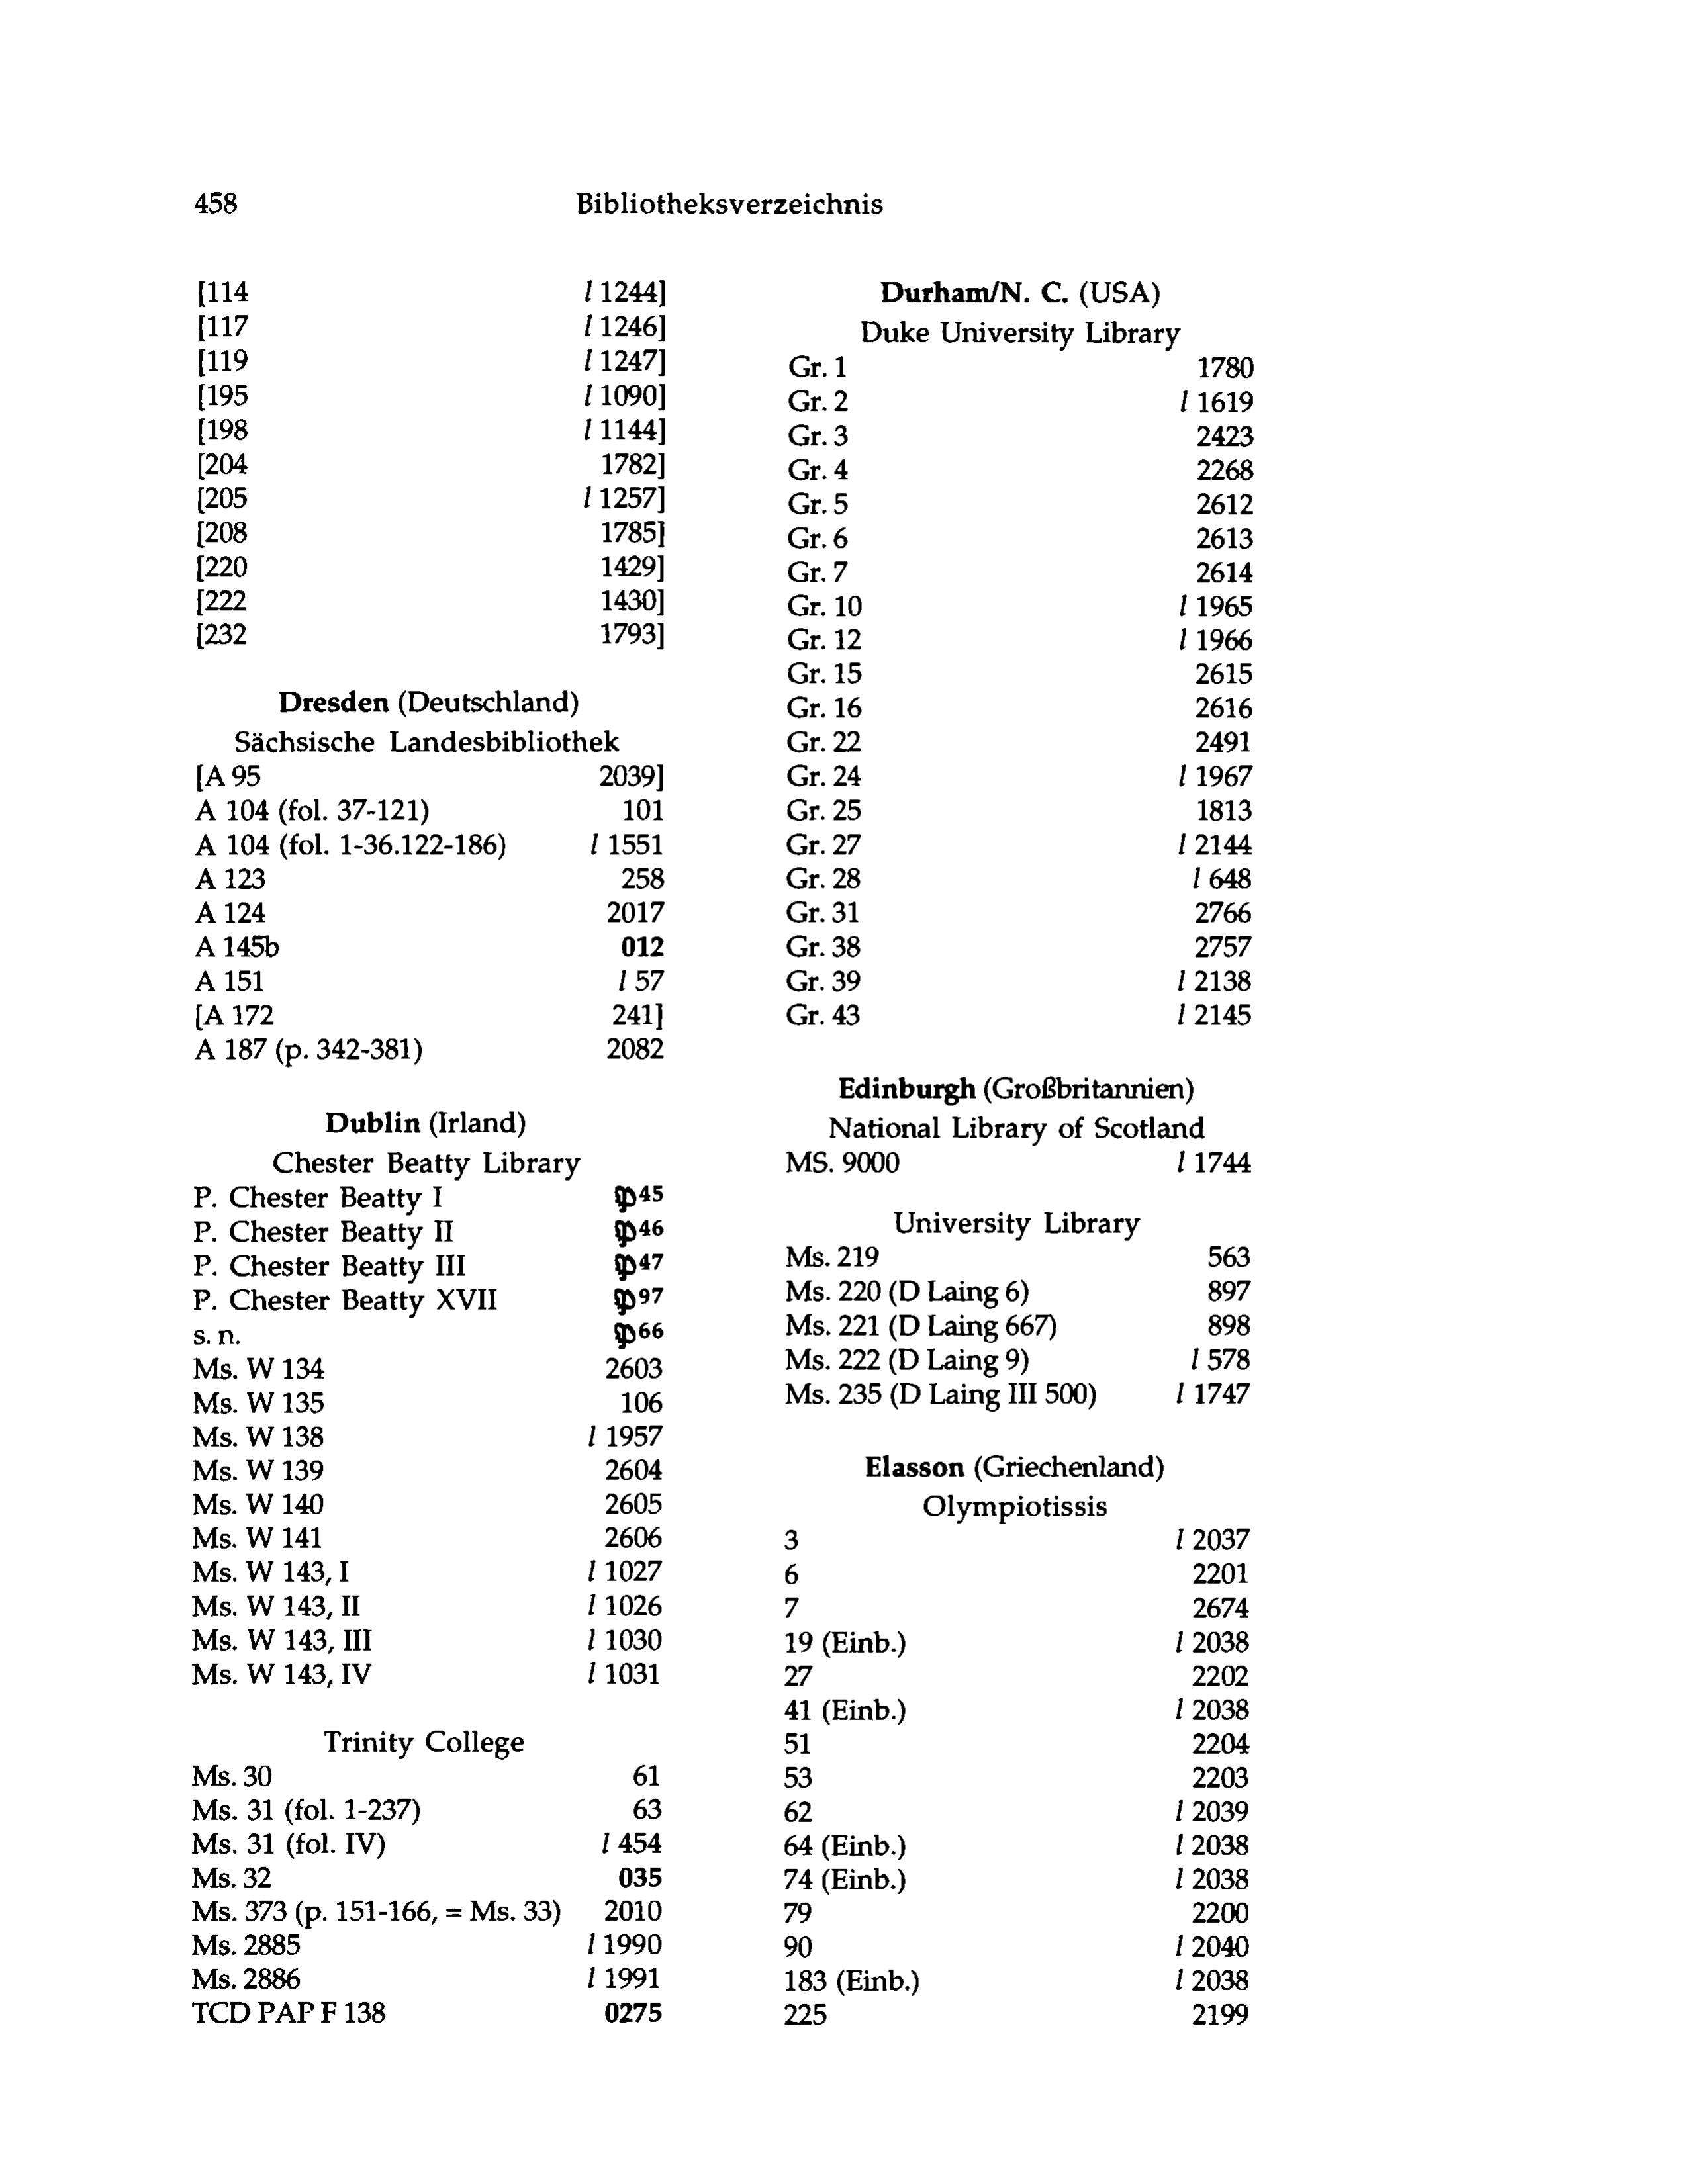 458 Bibliotheksverzeichnis
[114 l 1244]
[117 l 1246]
[119 l 1247]
[195 l 1090]
[198 l 1144]
[204 1782]
[205 l 1257]
[208 1785]
[220 1429]
[222 1430]
[232 1793]
Dresden (Deutschland)
Sächsische Landesbibliothek
[A 95 2039]
A 104 (fol. 37-121) 101
A 104 (fol. 1-36.122-186) l 1551
A 123 258
A 124 2017
A 145b 012
A 151 l 57
[A 172 241]
A 187 (p. 342-381) 2082
Dublin (Irland)
Chester Beatty Library
P. Chester Beatty I 𝔓45
P. Chester Beatty II 𝔓46
P. Chester Beatty III 𝔓47
P. Chester Beatty XVII 𝔓97
s. n. 𝔓66
Ms. W 134 2603
Ms. W 135 106
Ms. W 138 l 1957
Ms. W 139 2604
Ms. W 140 2605
Ms. W 141 2606
Ms. W 143, I l 1027
Ms. W 143, II l 1026
Ms. W 143, III l 1030
Ms. W 143, IV l 1031
Trinity College
Ms. 30 61
Ms. 31 (fol. 1-237) 63
Ms. 31 (fol. IV) l 454
Ms. 32 035
Ms. 373 (p. 151-166, = Ms. 33) 2010
Ms. 2885 l 1990
Ms. 2886 l 1991
TCD PAP F 138 0275
Durham/N. C. (USA)
Duke University Library
Gr. 1 1780
Gr. 2 l 1619
Gr. 3 2423
Gr. 4 2268
Gr. 5 2612
Gr. 6 2613
Gr. 7 2614
Gr. 10 l 1965
Gr. 12 l 1966
Gr. 15 2615
Gr. 16 2616
Gr. 22 2491
Gr. 24 l 1967
Gr. 25 1813
Gr. 27 l 2144
Gr. 28 l 648
Gr. 31 2766
Gr. 38 2757
Gr. 39 l 2138
Gr. 43 l 2145
Edinburgh (Großbritannien)
National Library of Scotland
MS. 9000 l 1744
University Library
Ms. 219 563
Ms. 220 (D Laing 6) 897
Ms. 221 (D Laing 667) 898
Ms. 222 (D Laing 9) l 578
Ms. 235 (D Laing III 500) l 1747
Elasson (Griechenland)
Olympiotissis
3 l 2037
6 2201
7 2674
19 (Einb.) l 2038
27 2202
41 (Einb.) l 2038
51 2204
53 2203
62 l 2039
64 (Einb.) l 2038
74 (Einb.) l 2038
79 2200
90 l 2040
183 (Einb.) l 2038
225 2199